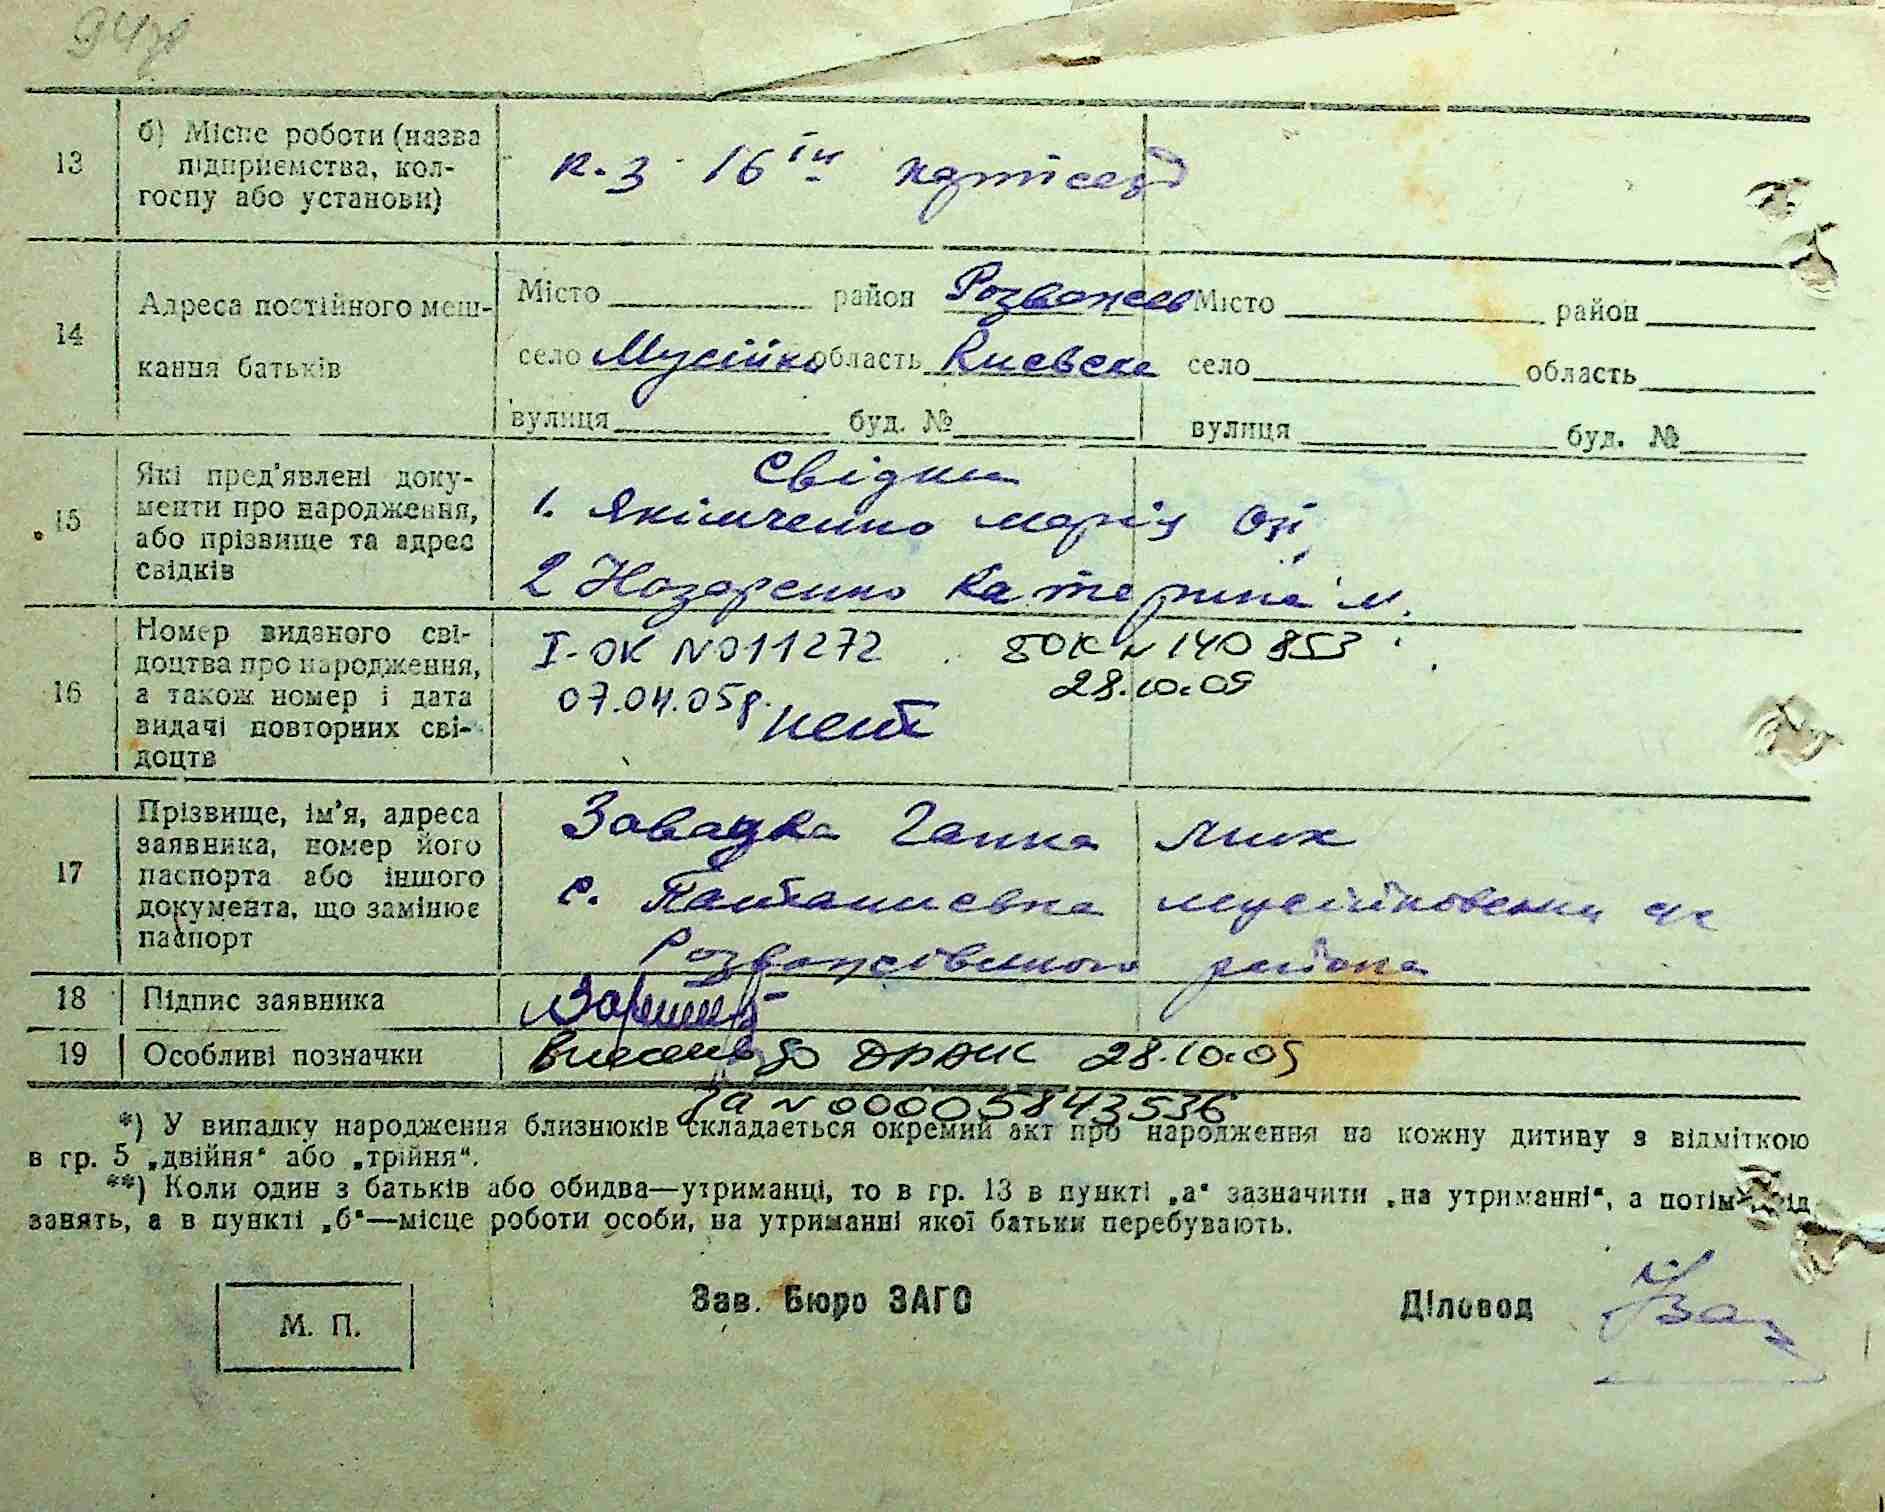 13 б) Місце роботи (назва підприємства, колгоспу або установи)
к-з 16 ій партісезд
14 Адреса постійного мешкання батьків
Місто район Розважев Місто район
село Мусійко область Киевска село область
вулиця буд. № вулиця буд. №
15 Які пред'явлені документи про народження, або прізвище та адрес свідків
Свідки
1. Якимченко Марія
2 Назаренко Катерина М.
16 Номер виданого свідоцтва про народження, а також номер і дата видачі повторних свідоцтв
I-ОК N011272 140853
07.04.05р. 28.10.05
17 Прізвище, ім'я, адреса заявника, номер його паспорта або іншого документа, що замінює паспорт
Завадка Ганна Мих
с. Мусійковский
Розважівського района
18 Підпис заявника
19 Особливі позначки
Внесено до ДРАЦС 28.10.05
За N 00005843536
*) У випадку народження близнюків складається окремий акт про народження на кожну дитину з відміткою
в гр. 5 „двійня“ або „трійня“.
**) Коли один з батьків або обидва—утриманці, то в гр. 13 в пункті „а“ зазначити „на утриманні“, а потім рід
занять, а в пункті „б“—місце роботи особи, на утриманні якої батьки перебувають.
М. П. Зав. Бюро ЗАГС Діловод